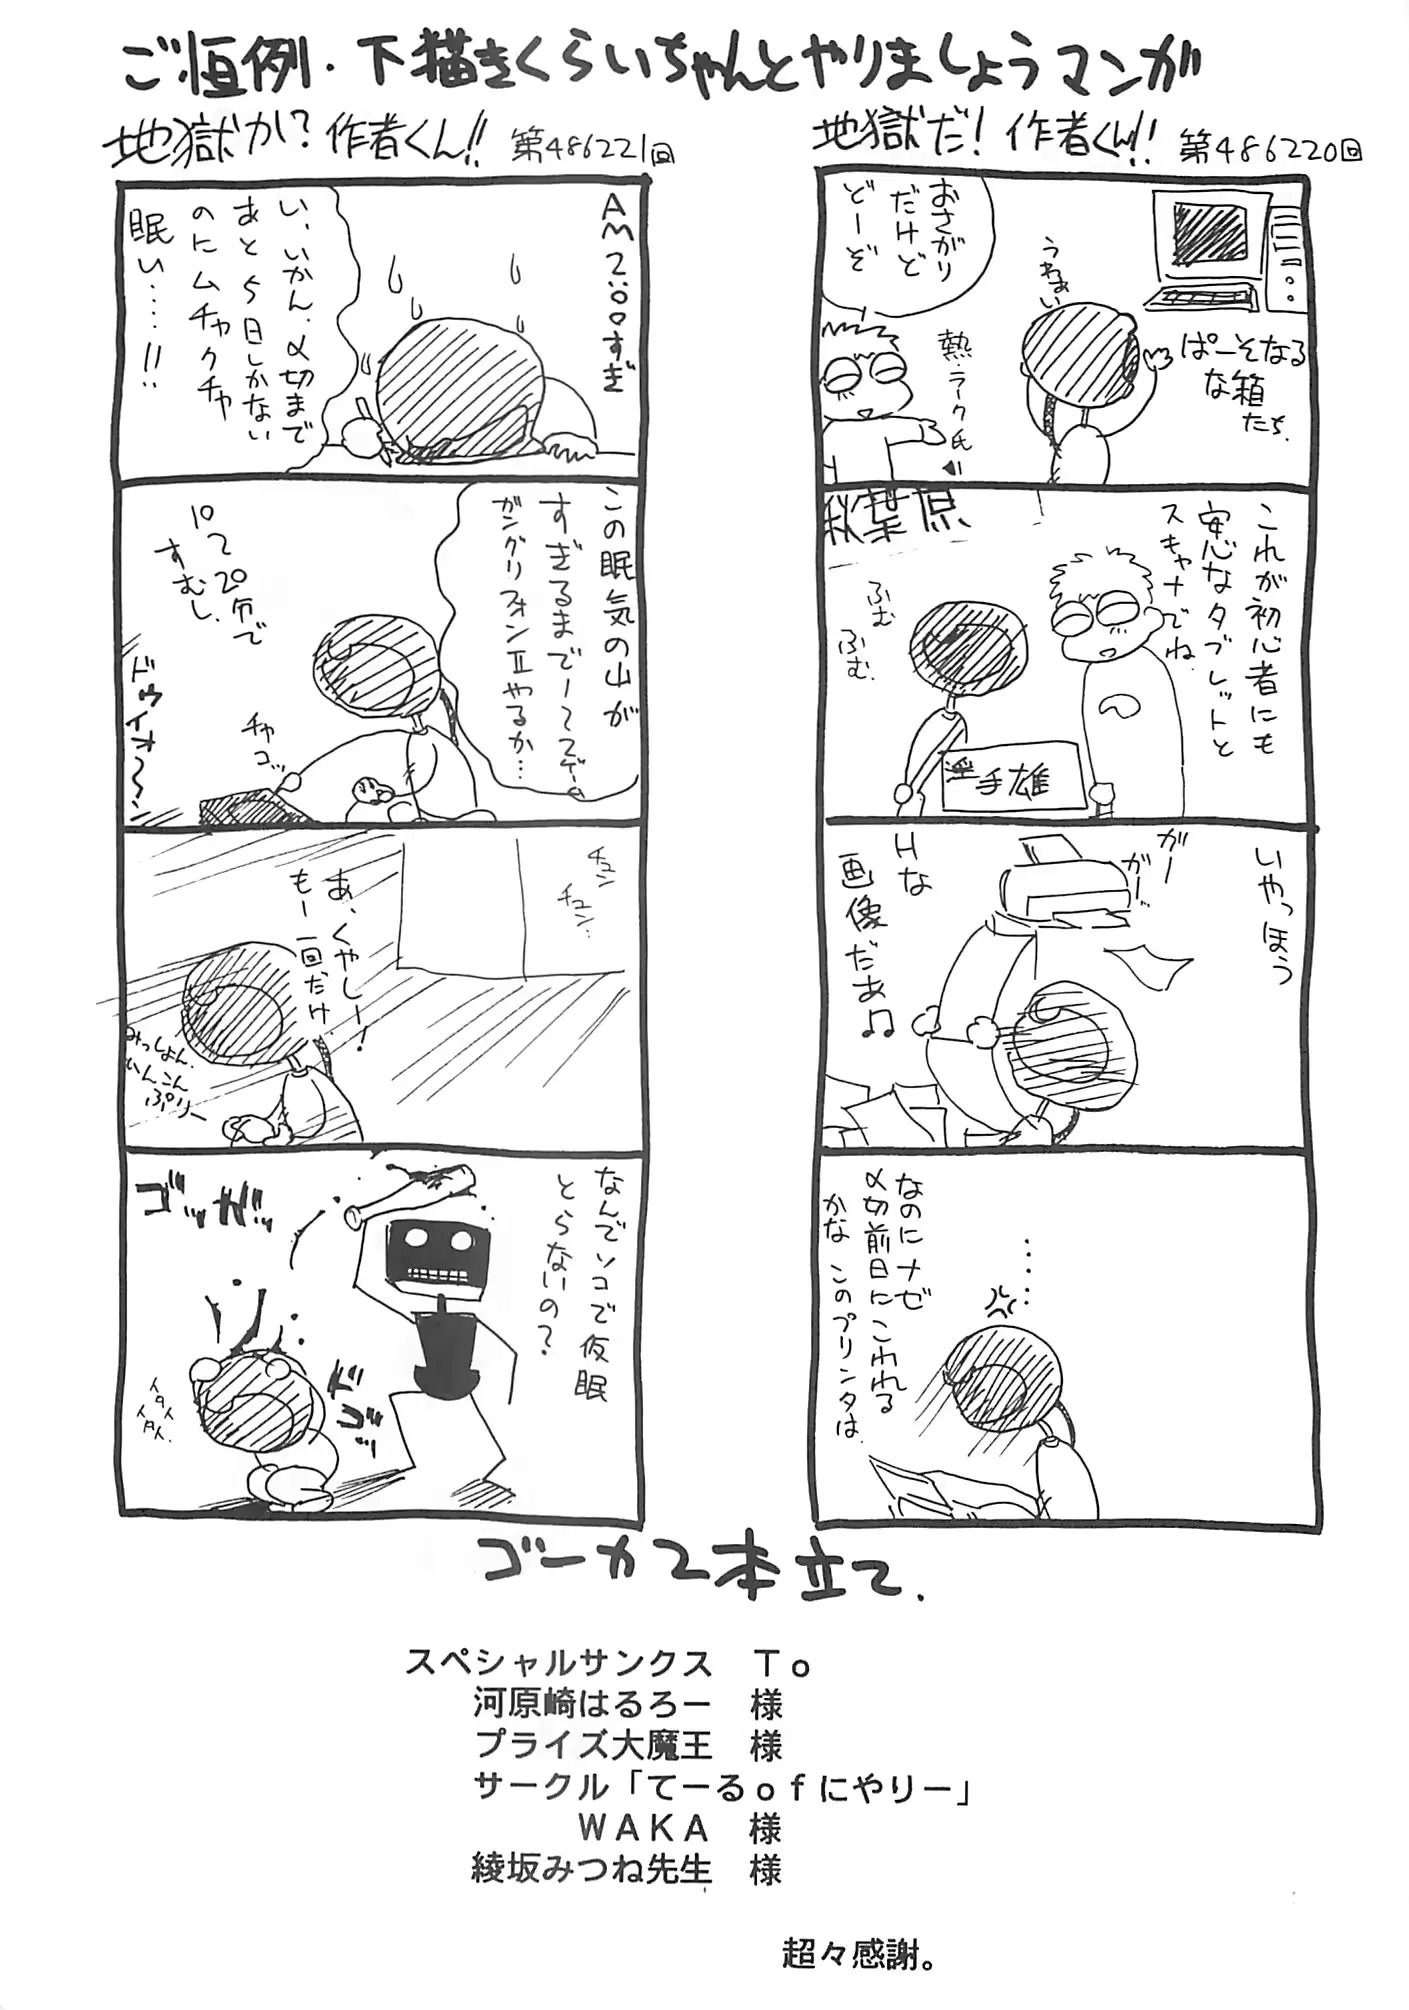 ご恒例・下描きくらいちゃんとやりましょうマンガ
地獄だ！作者くん!! 第486220回
おさがり
だけど
どーぞ
うわぁい
熱・ラーク氏
ぱーそなる
な箱
たち.
秋葉原
これが初心者にも
安心なタブレットと
スキャナでね
ふむ
ふむ.
いやっほう
ガー
ガー
Hな
画像だあ♫
‥‥‥
なのにナゼ
〆切前日にこわれる
かな このプリンタは.
地獄か？作者くん!! 第486221回
AM2:00すぎ
い、いかん、〆切まで
あと5日しかない
のにムチャクチャ
眠い‥‥!!
この眠気の山が
すぎるまでーてマデー
ガングリフォンⅡやるか…
10〜20分で
すむし.
チャ
コッ
ドゥイオ〜ン
チュン
チュン‥
あ、くやしー!
もー一回だけ
みっしょん
いんこん
ぷりー
なんでソコで仮眠
とらないの？
ゴッガッ
ドゴッ
イタイ
イタイ.
ゴーカ2本立て.
スペシャルサンクス　Ｔｏ
河原崎はるろー　様
プライズ大魔王　様
サークル「てーるｏｆにやリー」
ＷＡＫＡ　様
綾坂みつね先生　様
超々感謝。